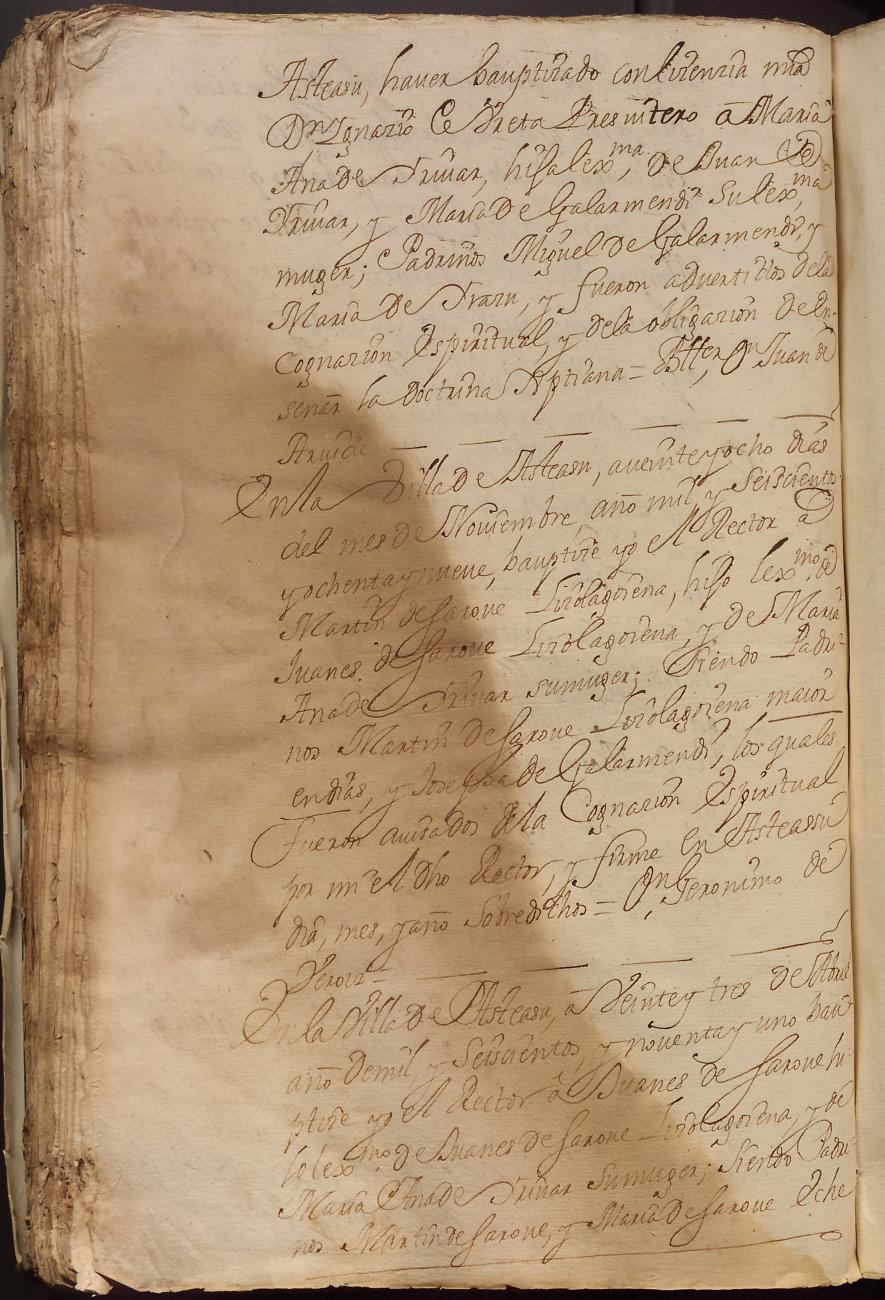 Asteasu, haver bauptizado con lizenzia mia
Dn Ygnazio de Vreta Presvitero a Maria
Ana de Yrivar, hija lexma, de Juan de
Yrivar, y Maria de Galarmendi su lexma,
muger; Padrinos Miguel de Galarmendi, y
Maria de Yrazu, y fueron advertidos dela
Cognazion Espiritual, y dela obligazion de En-
señar la Doctrina Xptiana = Dn Juan de
En la Villa de Asteasu, a veinte y ocho dias
del mes de Noviembre, año mil y Seiscientos
y ochenta y nueve, bauptize yo el Rector a
Martin de Sarove Lizolagorena, hijo lexmo, de
Juanes de Sarove Lizolagorena, y de Maria
Ana de Yrivar su muger; Siendo Padri-
nos Martin de Sarove Lizolagorena maior
en dias, y Josepha de Galarmendi, los quales
Fueron avisados de la Cognazion Espiritual
por mi el dho Rector, y firme en Asteassu
dia, mes, y año Sobredichos = Dn Geronimo de
En la Villa de Asteasu, a Veinte y tres de Abril
año de mil, y Seiscientos, y noventa y uno bau-
ptize yo el Rector a Juanes de Sarove hi-
jo lexmo de Juanes de Sarove Lizolagorena, y de
Maria Ana de Yrivar Su muger; Siendo Padri-
nos Martin de Sarove, y Maria de Sarove Eche